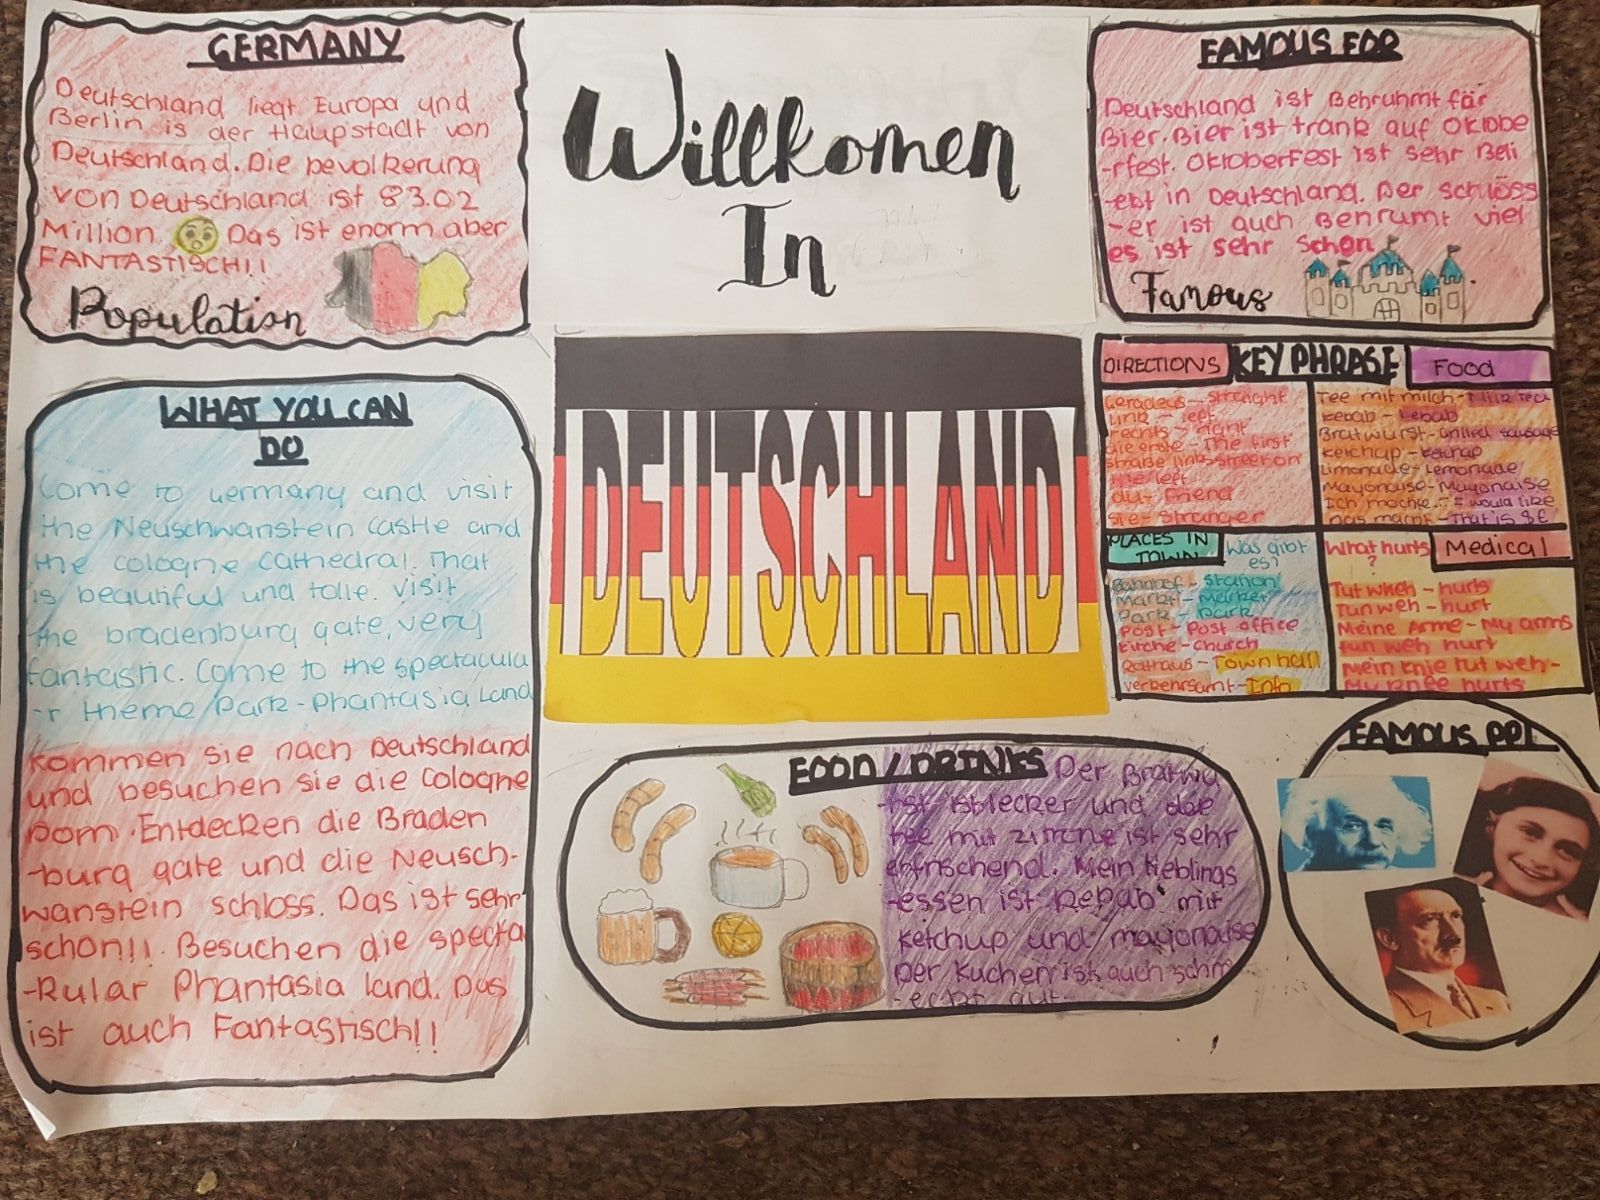 GERMANY
Deutschland liegt Europa und
Berlin is der Haupstadt von
Deutschland. Die bevolkerung
von Deutschland ist 83.02
Million Das ist enorm aber
FANTASTISCH!!
Population
Willkomen
In
FAMOUS FOR
Deutschland ist Behruhmt fär
Bier. Bier ist trank auf Oktobe
-rfest. Oktoberfest ist sehr Beli
-ebt in Deutschland. Der schlöss
-er ist auch Benrumt viel
es ist sehr schon
Famous
WHAT YOU CAN
DO
Come to Germany and visit
the Neuschwanstein castle and
the cologne cathedral. That
is beautiful und tolle. visit
the bradenburg gate, very
fantastic. Come to the spectacula
-r theme Park - Phantasia Land
Kommen sie nach Deutschland
und besuchen sie die Cologne
Dom. Entdecken die Braden
-burg gate und die Neusch-
wanstein schloss. Das ist sehr
schon!! Besuchen die specta
-kular Phantasia land. Das
ist auch Fantastisch!!
DEUTSCHLAND
DIRECTIONS
KEY PHRASE
Food
Geradeus - straight
link - left
rechts - right
die erste - The first
straße links - street on
the left
du - Friend
sie - stranger
Tee mit milch - Milk Tea
kebab - kebab
Bratwurst - Grilled sausage
Ketchup - ketchup
Limonade - Lemonade
Mayonaise - Mayonaise
Ich mochte... - I would like
Das macht - That is 8€
PLACES IN
TOWN
Was gibt
es?
Bahnhof - Station
Markt - Market
Park - park
Post - Post office
Kirche - church
Rathaus - Town hall
verkehrsamt - Info
What hurts
?
Medical
Tut wheh - hurts
Tun weh - hurt
Meine Arme - My arms
tun weh hurt
Mein knie tut weh -
My knee hurts
FOOD / DRINKS
Der Bratwu
-rst ist lecker und der
tee mit zitrone ist sehr
erfrischend. Mein lieblings
-essen ist Kebab mit
ketchup und mayonaise
Der Kuchen ist auch schm
-eckt gut.
FAMOUS PPL